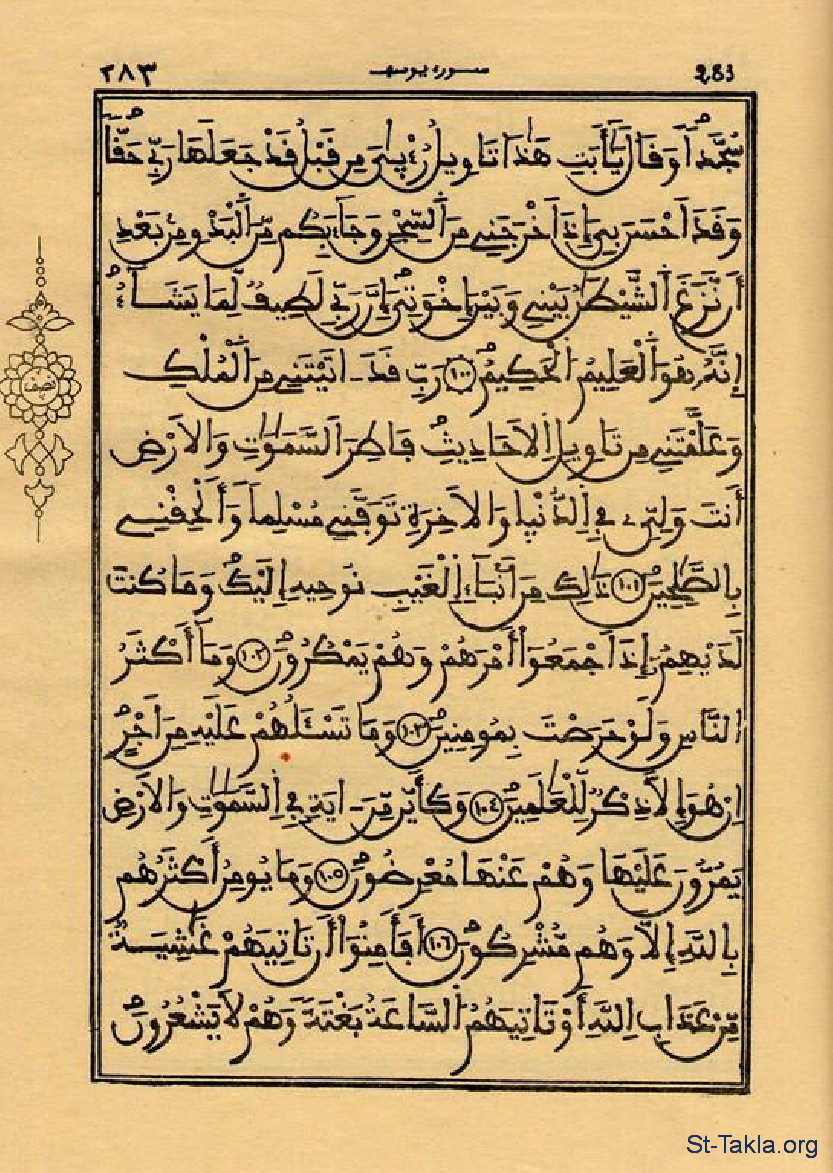 ٢٨٣ سورة يوسف 283
سُجَّداًۖ وَقَالَ يَٰٓأَبَتِ هَٰذَا تَاوِيلُ رُءْيَٰيَ مِن قَبْلُ قَدْ جَعَلَهَا رَبِّے حَقّاًۖ
وَقَدَ اَحْسَنَ بِيَ إِذَ اَخْرَجَنِے مِنَ اَلسِّجْنِ وَجَآءَ بِكُم مِّنَ اَلْبَدْوِ مِنۢ بَعْدِ
أَن نَّزَغَ اَلشَّيْطَٰنُ بَيْنِے وَبَيْنَ إِخْوَتِيَۖ إِنَّ رَبِّے لَطِيفٞ لِّمَا يَشَآءُۖ
إِنَّهُۥ هُوَ اَلْعَلِيمُ اُلْحَكِيمُۖ ١٠٠ رَبِّ قَدَ ـ اتَيْتَنِے مِنَ اَلْمُلْكِ
وَعَلَّمْتَنِے مِن تَاوِيلِ اِلَاحَادِيثِۖ فَاطِرَ اَلسَّمَٰوَٰتِ وَالَارْضِ
أَنتَ وَلِيِّۦ فِے اِلدُّنْيا وَالَاخِرَةِ تَوَفَّنِے مُسْلِماً وَأَلْحِقْنِے
بِالصَّٰلِحِينَۖ ١٠١ ذَٰلِكَ مِنَ اَنۢبَآءِ اِلْغَيْبِ نُوحِيهِ إِلَيْكَۖ وَمَا كُنتَ
لَدَيْهِمُۥٓ إِذَ اَجْمَعُوٓاْ أَمْرَهُمْ وَهُمْ يَمْكُرُونَۖ ١٠٢ وَمَآ أَكْثَرُ
اُلنَّاسِ وَلَوْ حَرَصْتَ بِمُومِنِينَۖ ١٠٣ وَمَا تَسْـَٔلُهُمْ عَلَيْهِ مِنَ اَجْرٍۖ
اِنْ هُوَ إِلَّا ذِكْرٞ لِّلْعَٰلَمِينَۖ ١٠٤ وَكَأَيِّن مِّنَ ـ ايَةٖ فِے اِلسَّمَٰوَٰتِ وَالَارْضِ
يَمُرُّونَ عَلَيْهَا وَهُمْ عَنْهَا مُعْرِضُونَۖ ١٠٥ وَمَا يُومِنُ أَكْثَرُهُم
بِاللَّهِ إِلَّا وَهُم مُّشْرِكُونَۖ ١٠٦ أَفَأَمِنُوٓاْ أَن تَاتِيَهُمْ غَٰشِيَةٞ
مِّنْ عَذَابِ اِللَّهِ أَوْ تَاتِيَهُمُ اُلسَّاعَةُ بَغْتَةٗ وَهُمْ لَا يَشْعُرُونَۖ
نصف
St-Takla.org